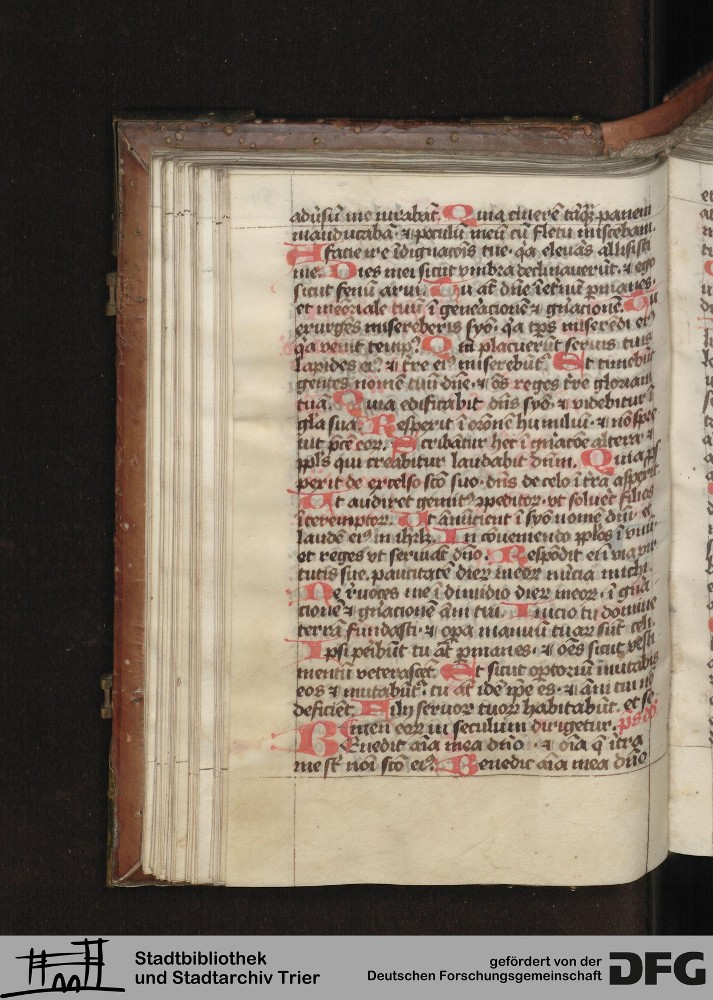 adūsū me iurabāt. Quia cinerē tāq̄ panem
manducabā ⁊ poculū meū cū fletu miscebam.
A facie ire īdignacōis tue· q̄a eleuās allisisti
me. Dies mei sicut vmbra declinauerūt· ⁊ ego
sicut fenū arui. Tu aūt dn̄e īetnū ꝑmanes·
et meōriale tuū ī gene͛acionē ⁊ gn̄acionē. Tu
exurgēs misereberis syō· q̄a tp̄s miserēdi eiꝰ
q̄a venit tempꝰ. Qm̄ placuerūt seruis tuis
lapides eiꝰ ⁊ tr̄e eiꝰ miserebūt᷑. Et timebūt
gentes nomē tuū dn̄e· ⁊ oēs reges tr̄e gloriam
tuā. Quia edificabit dn̄s syō· ⁊ videbitur ī
gl̄a sua. Respexit ī or̄onē humiliū· ⁊ nō spre
uit p̄cē eoꝝ. Scribātur hec ī gn̄acōe altera· ⁊
ppl̄s qui creabitur laudabit dn̄m. Quia ꝓs
pexit de excelso scō suo· dn̄s de celo ī trā aspexit
Ut audiret gemitꝰ ꝯpeditoꝝ· vt solueret filios
īteremptoꝝ. Ut ānūcient ī syō nomē dn̄i· et
laudē eiꝰ in ihrlm̄. In cōueniendo ppl̄os ī vnū·
et reges vt seruiāt dn̄o. Respōdit ei ī via vir
tutis sue· paucitatē dieꝝ meoꝝ nūcia michi.
Ne re͛uoces me ī dimidio dieꝝ meoꝝ· ī gn̄a
cionē ⁊ gn̄acionē ān̄i tui. Inicio tu domine
terrā fundasti· ⁊ oꝑa manuū tuaꝝ sūt celi.
Ipsi peibūt tu aūt ꝑmanes· ⁊ oēs sicut vesti
mentū veterascēt. Et sicut optoriū mutabis
eos ⁊ mutabūt᷑· tu aūt idē ip̄e es· ⁊ ān̄i tui nō
deficiēt. Filij seruoꝝ tuoꝝ habitabūt· et se
men eoꝝ in seculum dirigetur. ps
BEnedic aīa mea dn̄o· ⁊ oīa q̄ ītra
me sūt noī scō eiꝰ. Benedic aīa mea dn̄o
Stadtbibliothek
und Stadtarchiv Trier
gefördert von der
Deutschen Forschungsgemeinschaft DFG